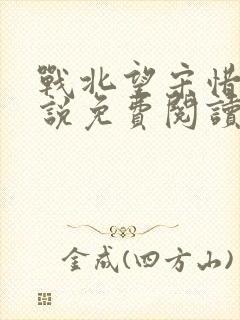 戰北望宋惜
說免費閱讀
金成(四方山)